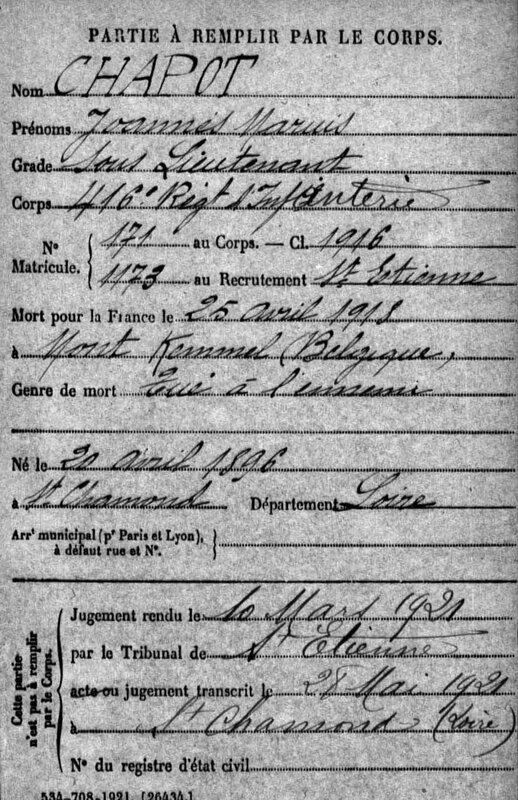 PARTIE À REMPLIR PAR LE CORPS.
Nom CHAPOT
Prénoms Joannès Marius
Grade Sous Lieutenant
Corps 416e Régt d'Infanterie
N° Matricule. { 171 au Corps. — Cl. 1916
1173 au Recrutement St Etienne
Mort pour la France le 25 avril 1918
à Mont Kemmel (Belgique)
Genre de mort Tué à l'ennemi
Né le 20 avril 1896
à St Chamond Département Loire
Arrt municipal (pr Paris et Lyon),
à défaut rue et N°.
Cette partie n'est pas à remplir par le Corps.
Jugement rendu le 10 Mars 1921
par le Tribunal de St Etienne
acte ou jugement transcrit le 28 Mai 1921
à St Chamond (Loire)
N° du registre d'état civil
534-708-1921. [26434.]